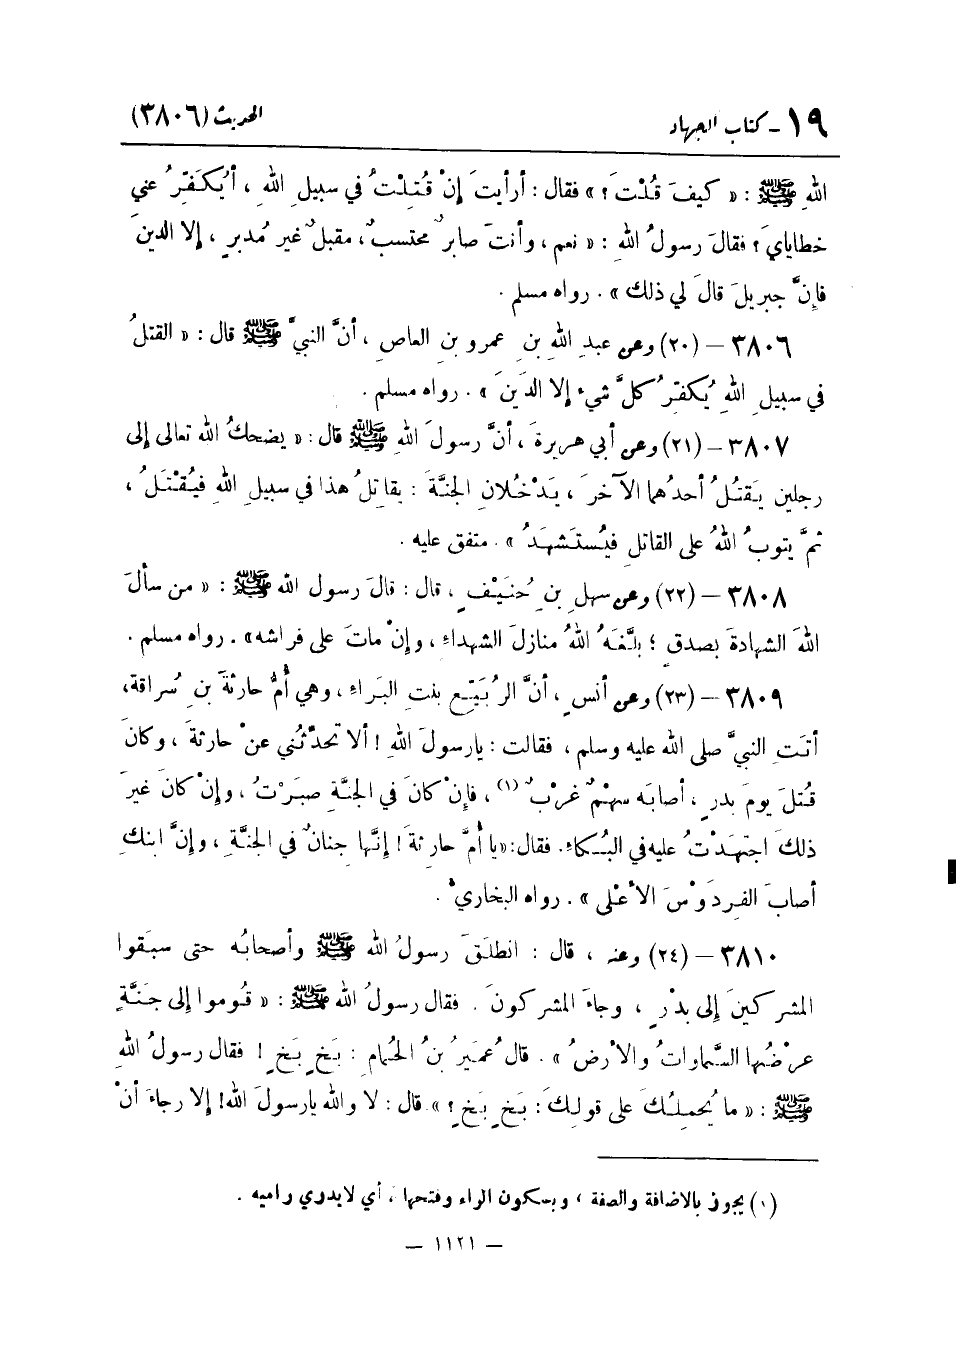 ١٩ - كتاب الجهاد الحديث (٣٨٠٦)
اللهِ ﷺ : « كيفَ قُلْتَ ؟ » فقال : أرأيتَ إنْ قُتِلْتُ في سبيلِ اللهِ ، أيُكَفِّرُ عني
خطايايَ ؟ فقالَ رسولُ اللهِ : « نعم ، وأنتَ صابرٌ محتسبٌ، مقبلٌ غير مُدبرٍ ، إلا الدينَ
فإنَّ جبريلَ قالَ لي ذلك » . رواه مسلم .
٣٨٠٦ – (٢٠) وعن عبدِ اللهِ بنِ عمرو بنِ العاصِ ، أنَّ النبيَّ ﷺ قال : « القتلُ
في سبيلِ اللهِ يُكفِّرُ كلَّ شيءٍ إلا الدَينَ » . رواه مسلم .
٣٨٠٧ – (٢١) وعن أبي هريرةَ ، أنَّ رسولَ اللهِ ﷺ قال : « يضحكُ الله تعالى إلى
رجلين يَقتُلُ أحدُهما الآخرَ ، يَدْخُلانِ الجنَّةَ : يقاتِلُ هذا في سبيلِ اللهِ فيُقْتَلُ ،
ثمَّ يتوبُ اللهُ على القاتلِ فيُستَشهَدُ » . متفق عليه .
٣٨٠٨ – (٢٢) وعن سهلِ بنِ حُنَيْفٍ ، قال : قالَ رسولُ الله ﷺ : « من سألَ
اللهَ الشهادةَ بصدقٍ ؛ بلَّغَهُ اللهُ منازلَ الشهداءِ ، وإنْ ماتَ على فراشه» . رواه مسلم .
٣٨٠٩ – (٢٣) وعن أنسٍ ، أنَّ الرُبَيِّعِ بنتِ البَراءِ ، وهي أمُّ حارثةَ بنِ سُراقة،
أتتِ النبيَّ صلى الله عليه وسلم ، فقالت : يارسولَ اللهِ ! ألا تحدِّثُني عنْ حارثةَ ، وكانَ
قُتلَ يومَ بدرٍ ، أصابَه سهْمٌ غَرْبٌ (١) ، فإنْ كانَ في الجنَّةِ صبَرْتُ ، وإنْ كانَ غيرَ
ذلكَ اجتهَدْتُ عليه في البُكاءِ. فقال : «يا أُمَّ حارثةَ ! إنَّها جِنانٌ في الجنَّةِ ، وإنَّ ابنكِ
أصابَ الفِردَوْسَ الأعْلى » . رواه البخاريُّ .
٣٨١٠ – (٢٤) وعنه ، قال : انطلَقَ رسولُ الله ﷺ وأصحابُه حتى سبَقوا
المشركينَ إلى بدْرٍ ، وجاءَ المشركونَ . فقال رسولُ اللهِ ﷺ : « قُوموا إلى جَنَّةٍ
عرْضُها السَّماواتُ والأرضُ » . قالَ عُمَيرُ بنُ الحُمامِ : بَخٍ بَخٍ ! فقال رسولُ اللهِ
ﷺ : « ما يُحمِلُكَ على قولِكَ : بَخٍ بَخٍ ؟ » قال : لا واللهِ يارسولَ الله! إلا رجاءَ أنْ
(١) يجوز بالاضافة والصفة ، وبسكون الراء وفتحها ، أي لايدري راميه .
– ١١٢١ –